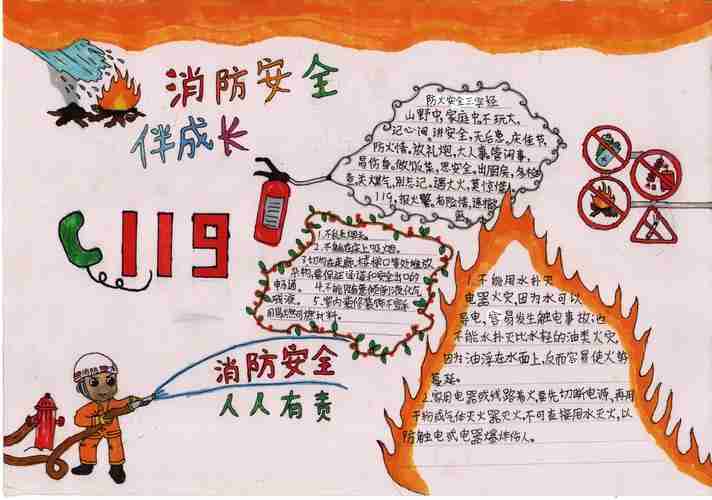 消防安全
伴成长
119
防火安全三字经
山野中,家庭中,不玩火,
记心间,讲安全,无后患,庆佳节,
防火情,放礼炮,大人事,管闲事,
易伤身,做饭菜,思安全,出厨房,
关煤气,别忘记,遇大火,莫惊慌!
119,报火警,有险情,速撤
离
1.不乱丢烟头。
2.不躺在床上吸烟。
3.切勿在走廊、楼梯口等处堆放
杂物,要保证通道和安全出口的
畅通。 4.不能随意倾倒液化气
残液。 5.室内装修装饰不宜采
用易燃可燃材料。
消防安全
人人有责
1.不能用水扑灭
电器火灾,因为水可以
导电,容易发生触电事故;也
不能水扑灭比水轻的油类火灾,
因为油浮在水面上,反而容易使火势
蔓延。
2.家用电器或线路着火,要先切断电源,再用
干粉或气体灭火器灭火,不可直接用水灭火,以
防触电或电器爆炸伤人。